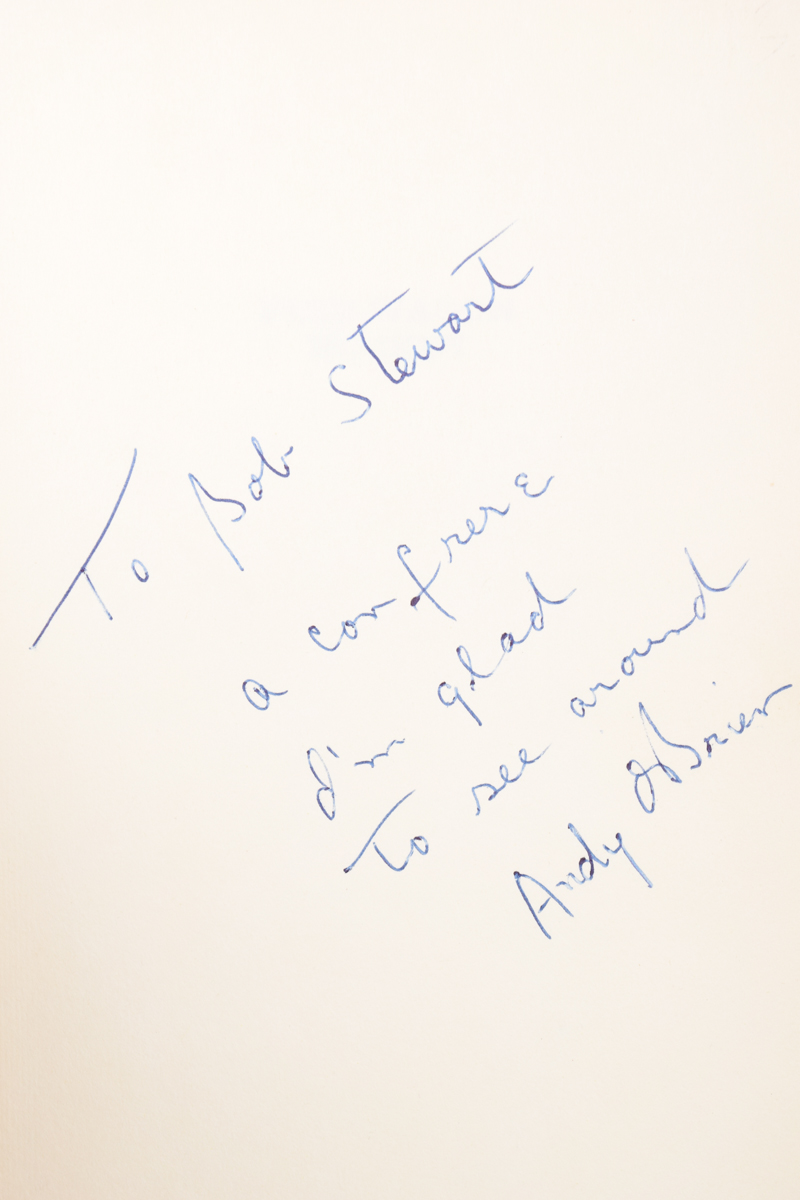 To Bob Stewart
a confrere
I'm glad
to see around
Andy O'Brien